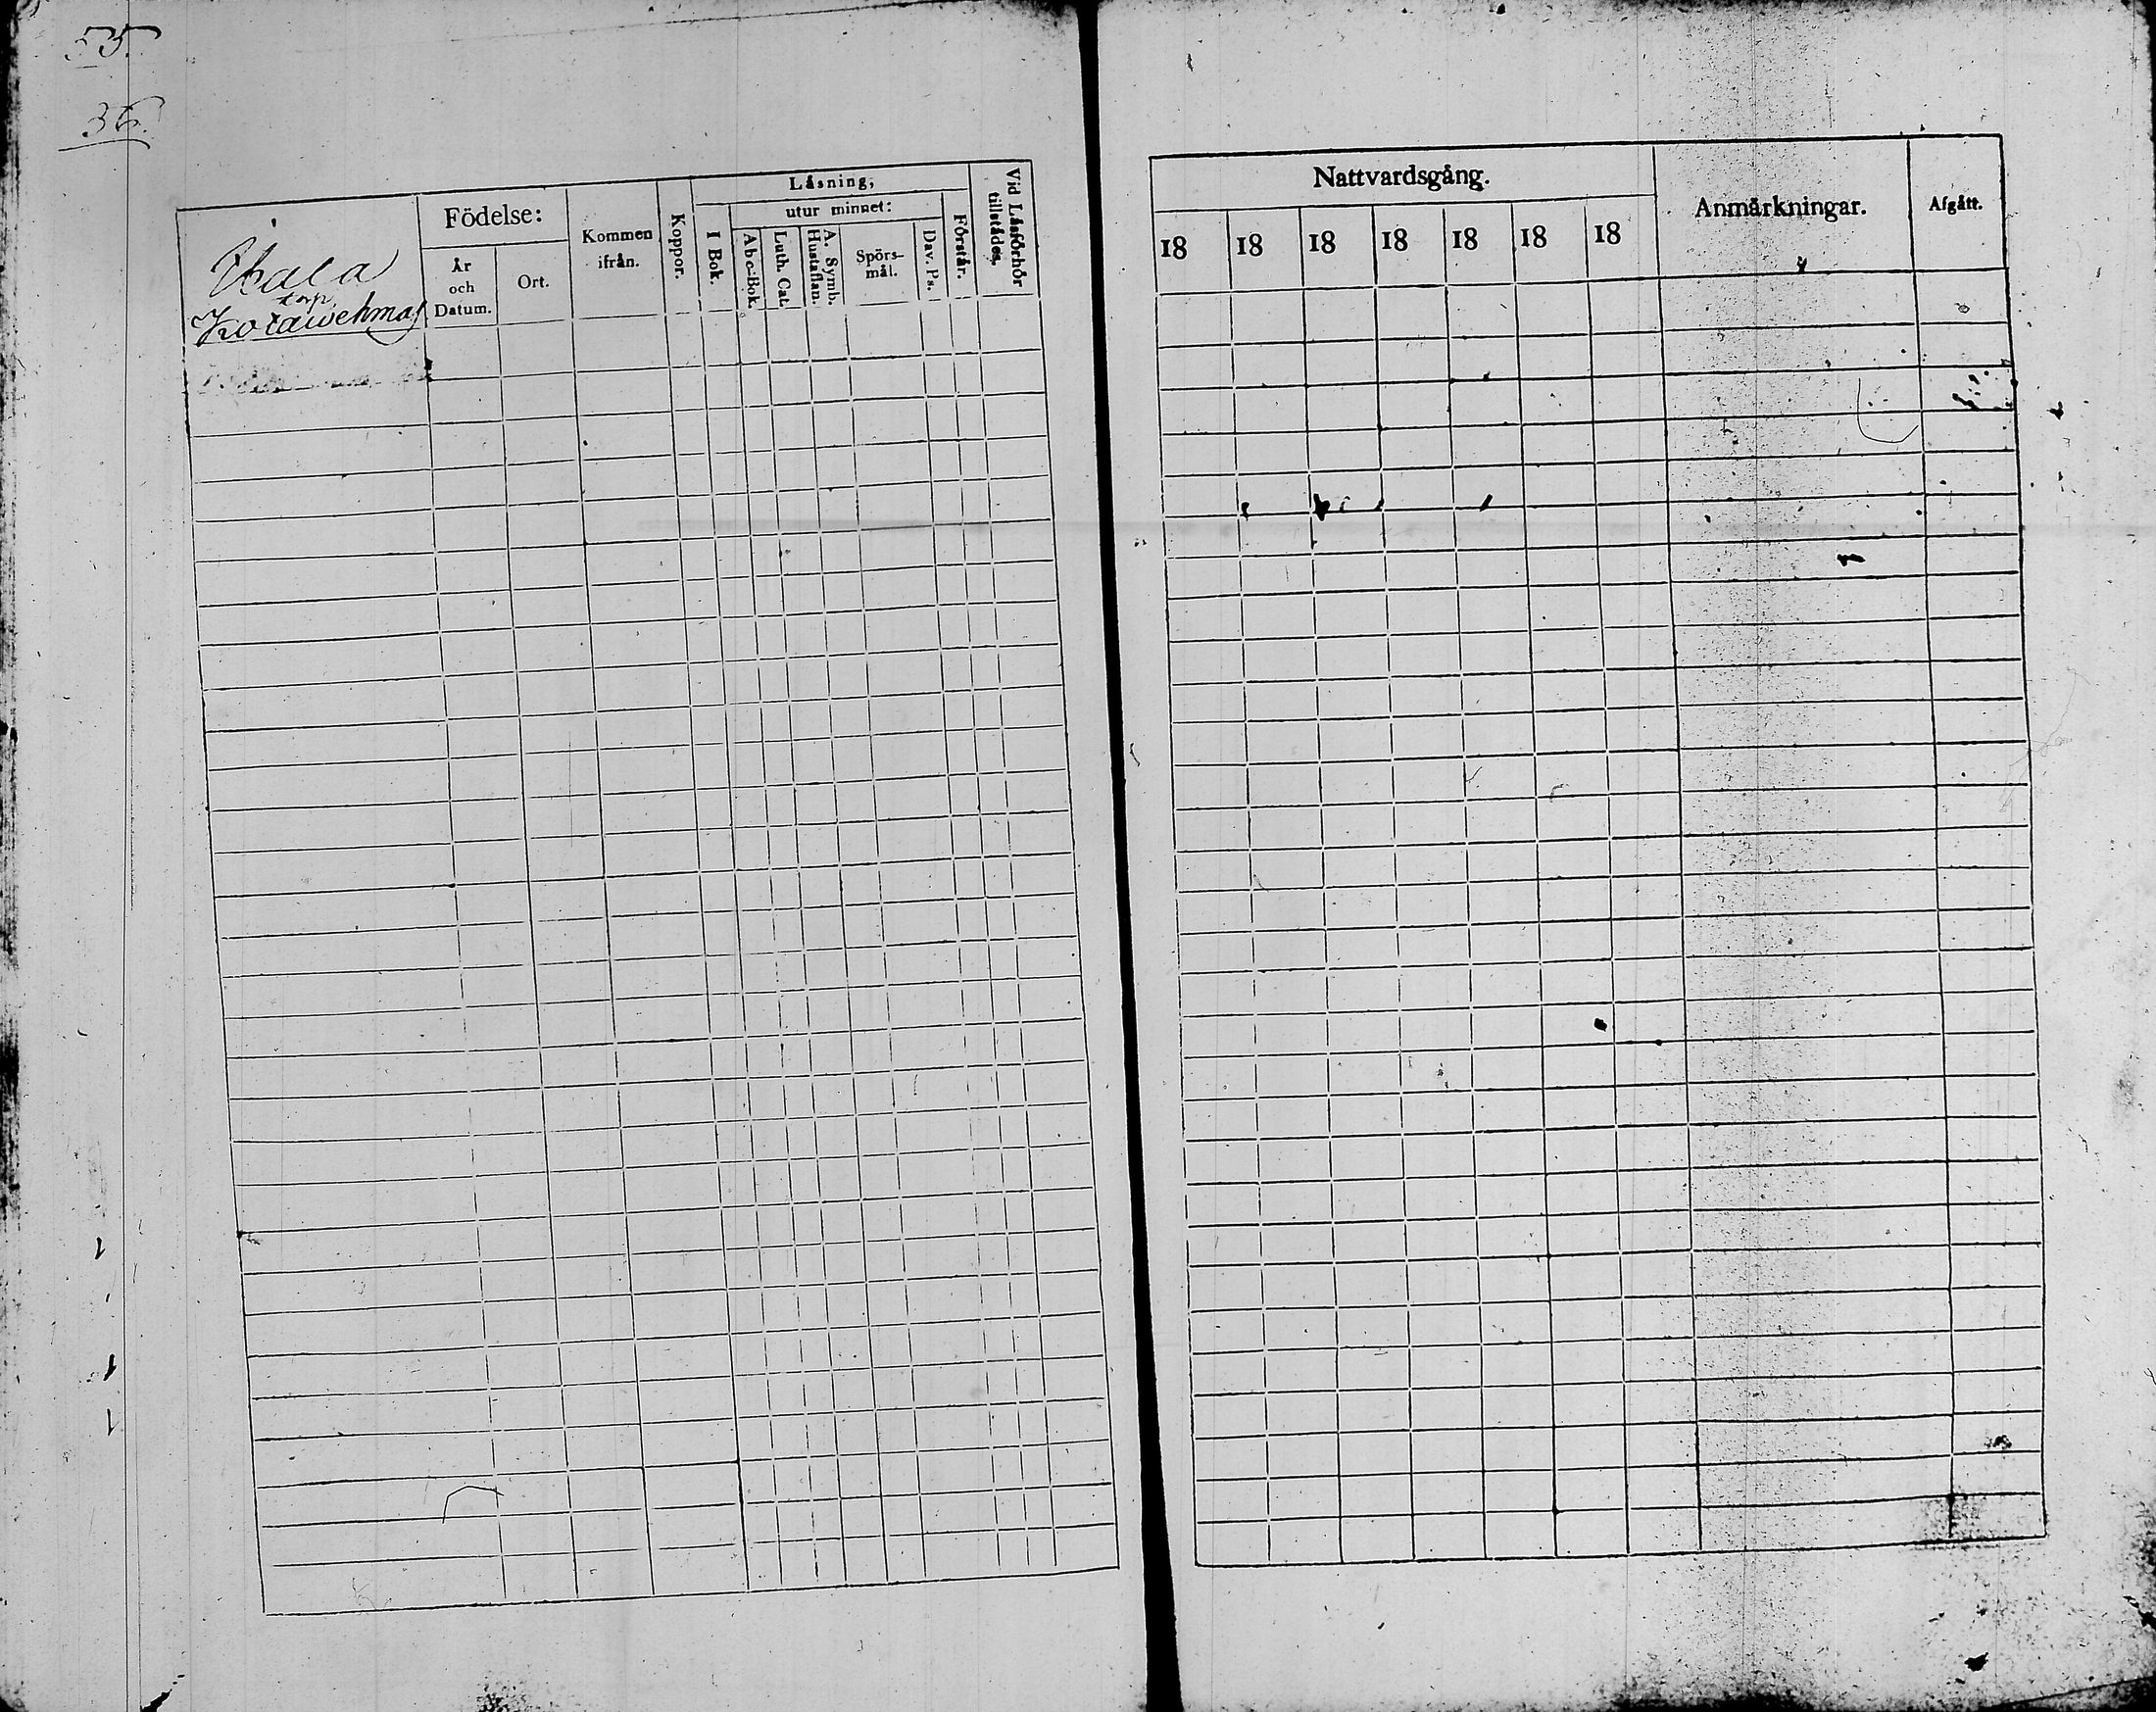 55.
36.
Ihala
torp
Kotawehmas
Födelse:
År
och
Datum.
Ort.
Kommen
ifrån.
Koppor.
Läsning,
I Bok.
utur minnet:
Abc-Bok.
Luth. Cat.
A. Symb.
Hustaflan.
Spörs-
mål.
Dav. Ps.
Förstår.
Vid Läsförhör
tillstädes.
Nattvardsgång.
18 18 18 18 18 18 18
Anmärkningar.
Afgått.